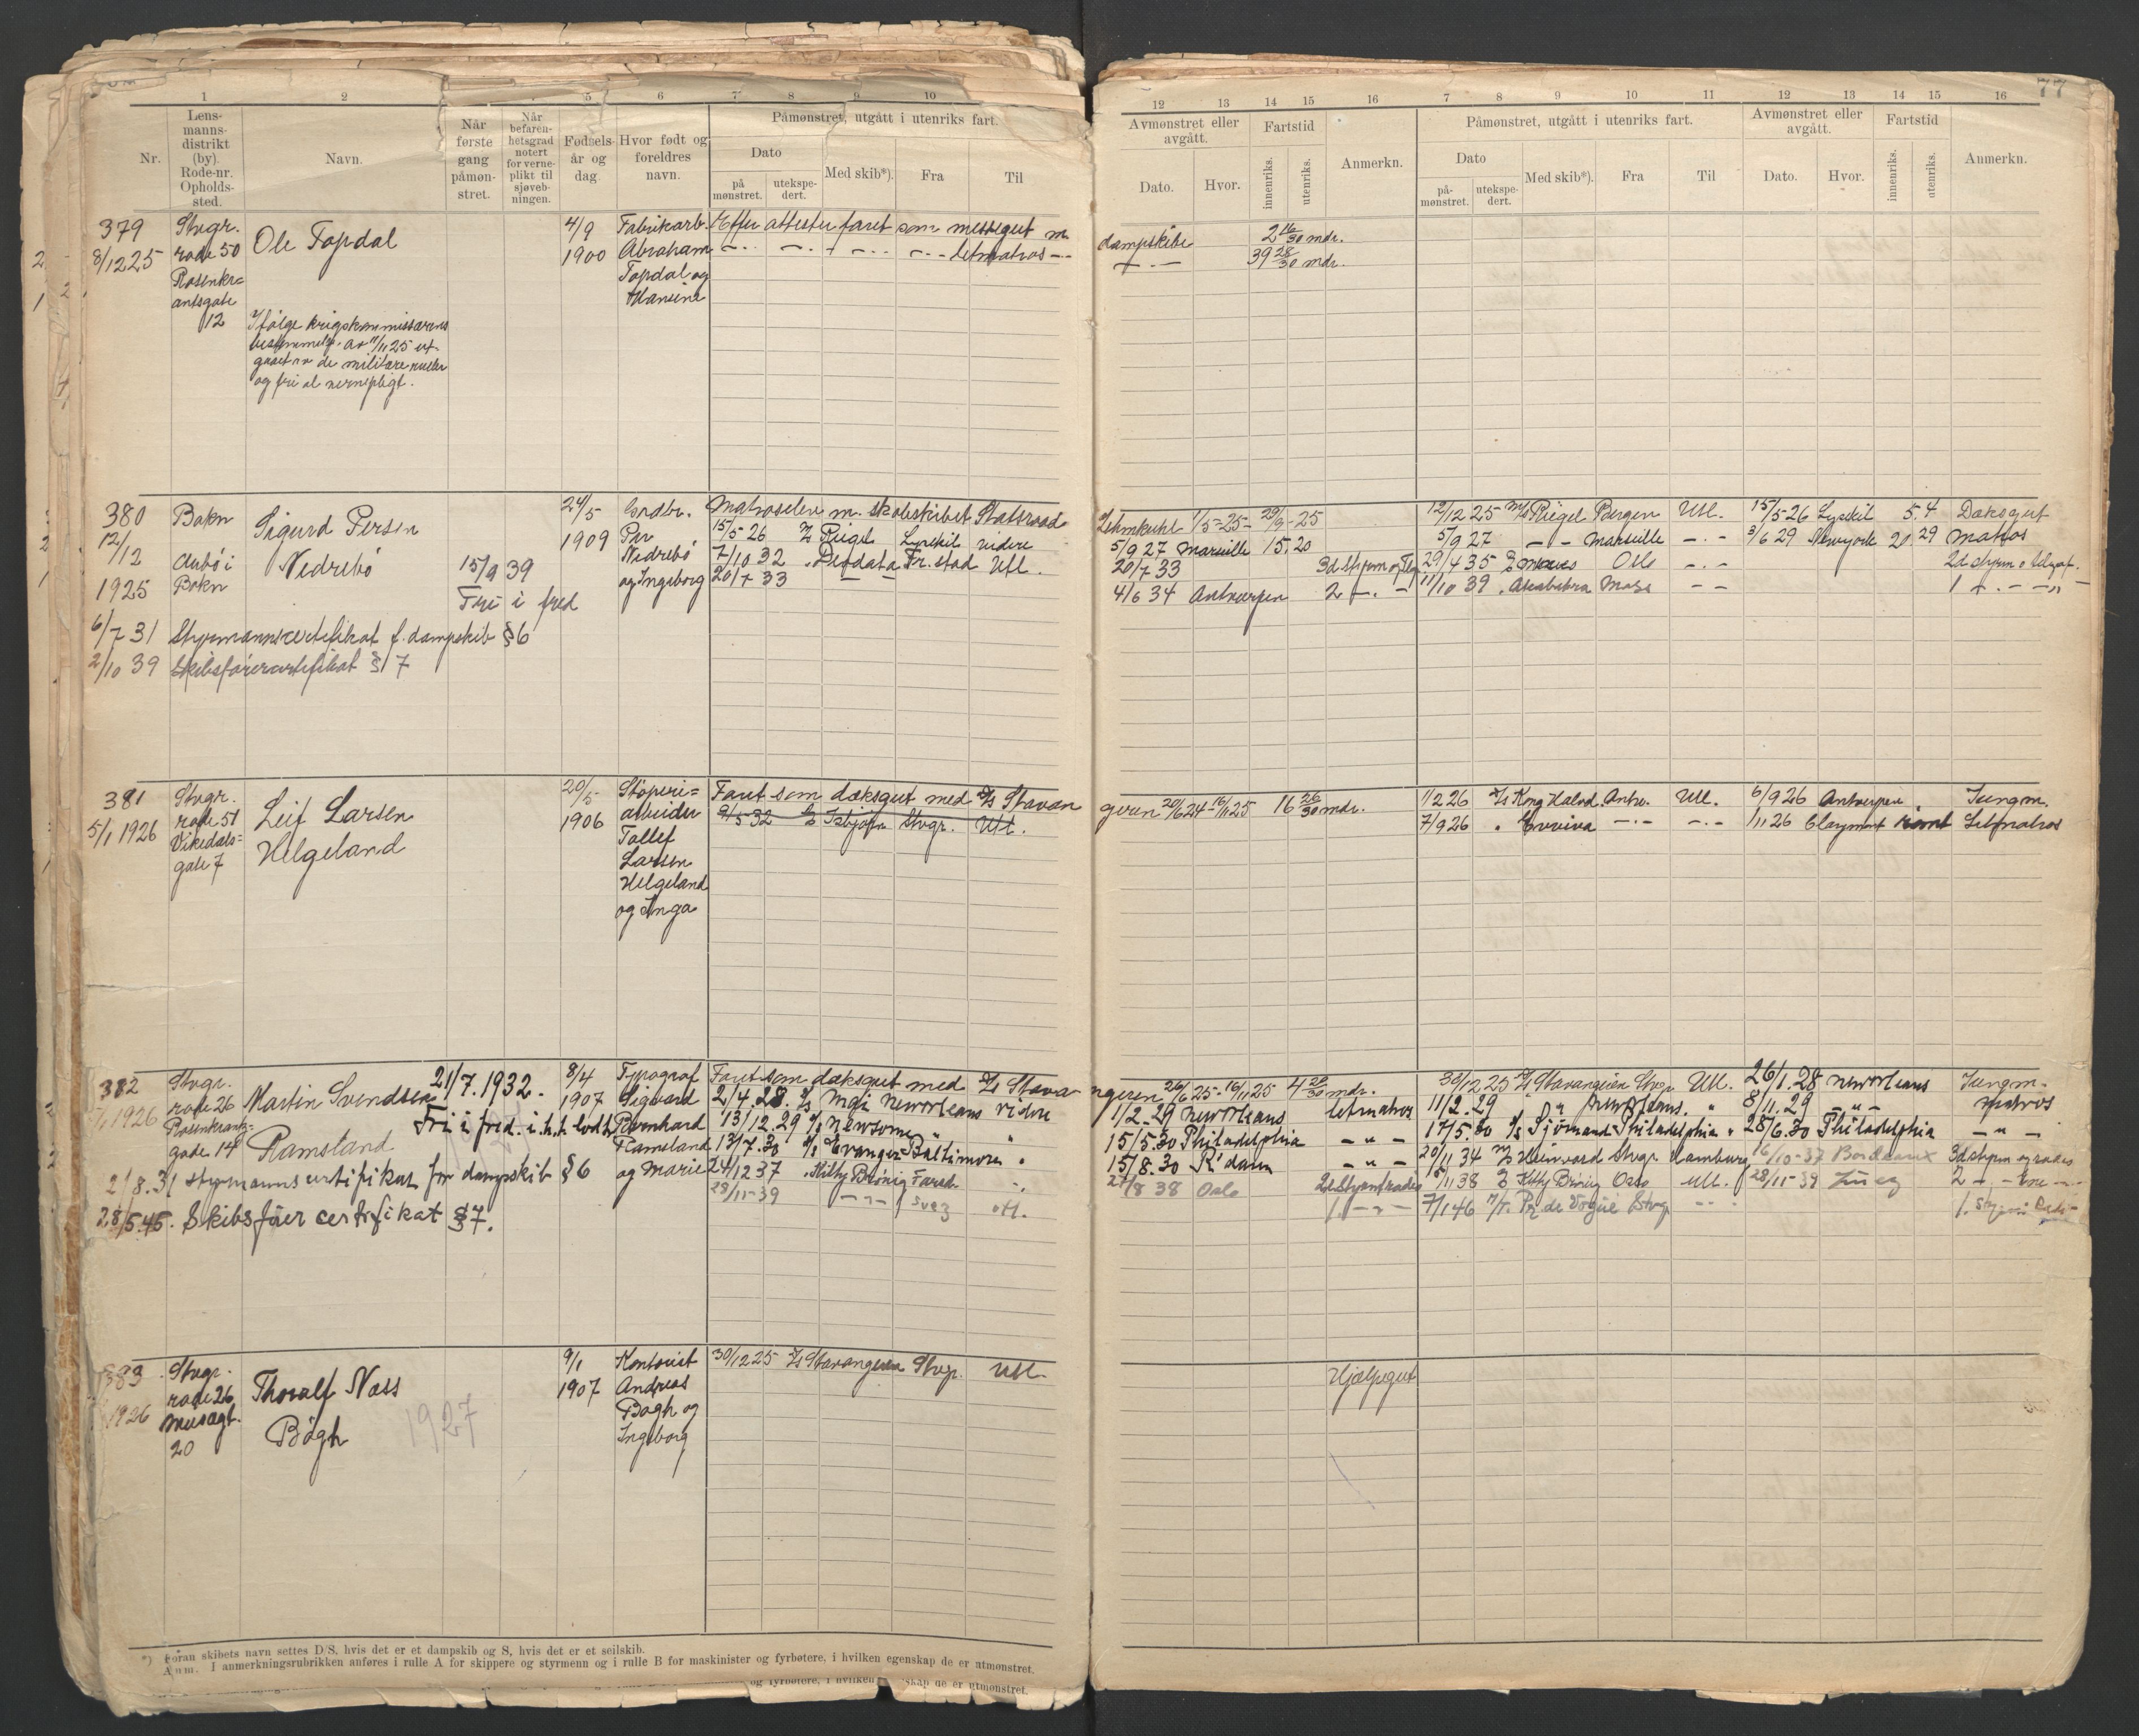 77
1 2 5 6 7 8 9 10
Nr.
Lens-
manns-
distrikt
(by).
Rode-nr.
Opholds-
sted.
Navn.
Når
første
gang
påmøn-
stret.
Når
befaren-
hetsgrad
notert
for verne-
plikt til
sjøveb-
ningen.
Fødsels-
år og
dag.
Hvor født og
foreldres
navn.
Påmønstret, utgått i utenriks fart.
Dato
på
mønstret.
utekspe-
dert.
Med skib*).
Fra
Til
12 13 14 15 16 7 8 9 10 11 12 13 14 15 16
Avmønstret eller
avgått.
Dato.
Hvor.
Fartstid
innenriks.
utenriks.
Anmerkn.
Påmønstret, utgått i utenriks fart.
Dato
på-
mønstret.
utekspe-
dert.
Med skib*).
Fra
Til
Avmønstret eller
avgått.
Dato.
Hvor.
Fartstid
innenriks.
utenriks.
Anmerkn.
379
8/12 25
Stvgr.
rode 50
Rosenkr=
antsgate
12
Ole Topdal
Ifølge krigskommissærens
bestemmelse av 11/11 25 ut-
gaaet av de militære ruller
og fri al vernepligt.
4/9
1900
Fabrikarb.
Abraham
Topdal og
Hansine
Efter attester faret som messegut m.
dampskibe 2 16/30 mdr.
letmatros
39 28/30 mdr.
380
12/12
1925
Bokn
Aubø i
Bokn
Sigurd Persen
Nedrebø
15/9 39
Fri i fred
24/5
1909
Gardbr.
Per
Nedrebø
og Ingeborg
6/7 31 Styrmannscertifikat f. dampskib § 6
2/10 39 Skibsførercertifikat § 7
Matroselev m. skoleskibet Statsraad
Lehmkuhl 1/5-25 - 29/9-25
15/5 26 Rigel Lysekil videre
5/9 27 Marseille 15.20
7/10 32 Deodata Fr.stad Utl.
20/7 33
20/7 33
4/6 34 Antwerpen 2
12/12 25 M/s Rigel Bergen Utl. 15/5-26 Lysekil 5.4 Dæksgut
5/9 27 Marseille 3/6 29 Newyork 20 29 Matros
29/4 35 Oslo
11/10 39 Moss
381
5/1 1926
Stvgr.
rode 51
Vikedals=
gate 7
Leif Larsen
Helgeland
20/5
1906
Støperi=
arbeider
Tollef
Larsen
Helgeland
og Inga
Faret som dæksgut med D/s Stavan
geren 20/6 24 - 16/11 25 16 26/30 mdr.
9/5 32 Isbjørn Stvgr. Utl.
1/2 26 D/s Kong Halvd. Antw. Utl. 6/9 26 Antwerpen Jungm.
7/9 26 Evviva /11 26 Claymont Letmatros
382
/1 1926
Stvgr.
rode 26
Rosenkrantz=
gade 14
Martin Svendsen
Ramsland
21/7.1932.
Fri i fred. i.h.t. lodtr.
8/4
1907
Typograf
Sigvard
Bernhard
Ramsland
og Marie
2/8.31 Styrmannscertifikat for dampskib § 6
28/5.45. Skibsfører certifikat § 7.
Faret som dæksgut med D/s Stava
ngeren 26/6 25 - 16/11 25 4 20/30 mdr.
2/4.28. Neworleans videre
1/2.29 Neworleans letmatros
13/12.29 Newsome
15/5.30 Philadelphia
13/7.30 Evanger Baltimore
15/8.30 R'dam
24/12 37 Kitty Brövig Farsd.
27/8 38 Oslo
28/11-39 Suez utl.
30/12 25 D/s Stavangeren Stvgr. Utl. 26/1.28 Neworleans Jungm.
11/2.29 Neworleans. 8/11.29 Matros
17/5.30 Sjömand Philadelphia 28/6.30 Philadelphia
20/11 34 Heinvard Stvgr. Hamburg 16/10-37 Bordeaux
/11 38 Kitty Brövig Oslo Utl. 28/11-39 Suez
7/1 46 M/T. Pr. de Vogüe Stvgr.
383
1926
Stvgr.
rode 26
Musægt.
20
Thoralf Næss
Bögh
1927
9/1
1907
Kontorist
Andreas
Bögh og
Ingeborg
30/12 25 D/s Stavangeren Stvgr. Utl.
Hjælpegut
*) Foran skibets navn settes D/S, hvis det er et dampskib og S, hvis det er et seilskib.
Anm. I anmerkningsrubrikken anføres i rulle A for skippere og styrmenn og i rulle B for maskinister og fyrbøtere, i hvilken egenskap de er utmønstret.
og fyrbøtere, i hvilken skap de er utmønstret.